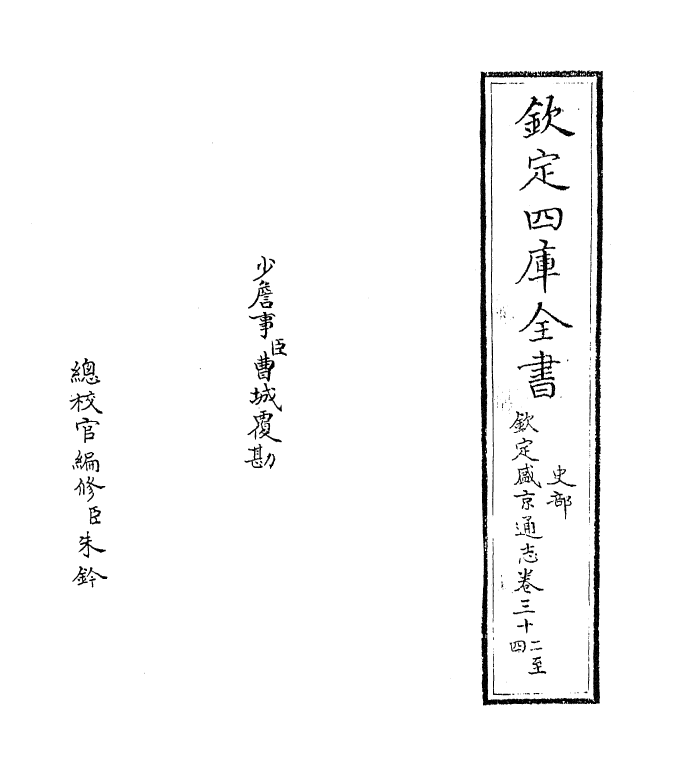 欽定四庫全書
史部
欽定盛京通志卷三十二至四
少詹事臣曹城覆勘
總校官編修臣朱鈐